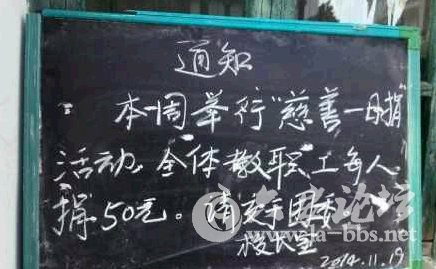 通知
本周举行“慈善一日捐”
活动，全体教职工每人
捐50元。请交于团委。
校长室
2014.11.19
论坛
ja-bbs.net